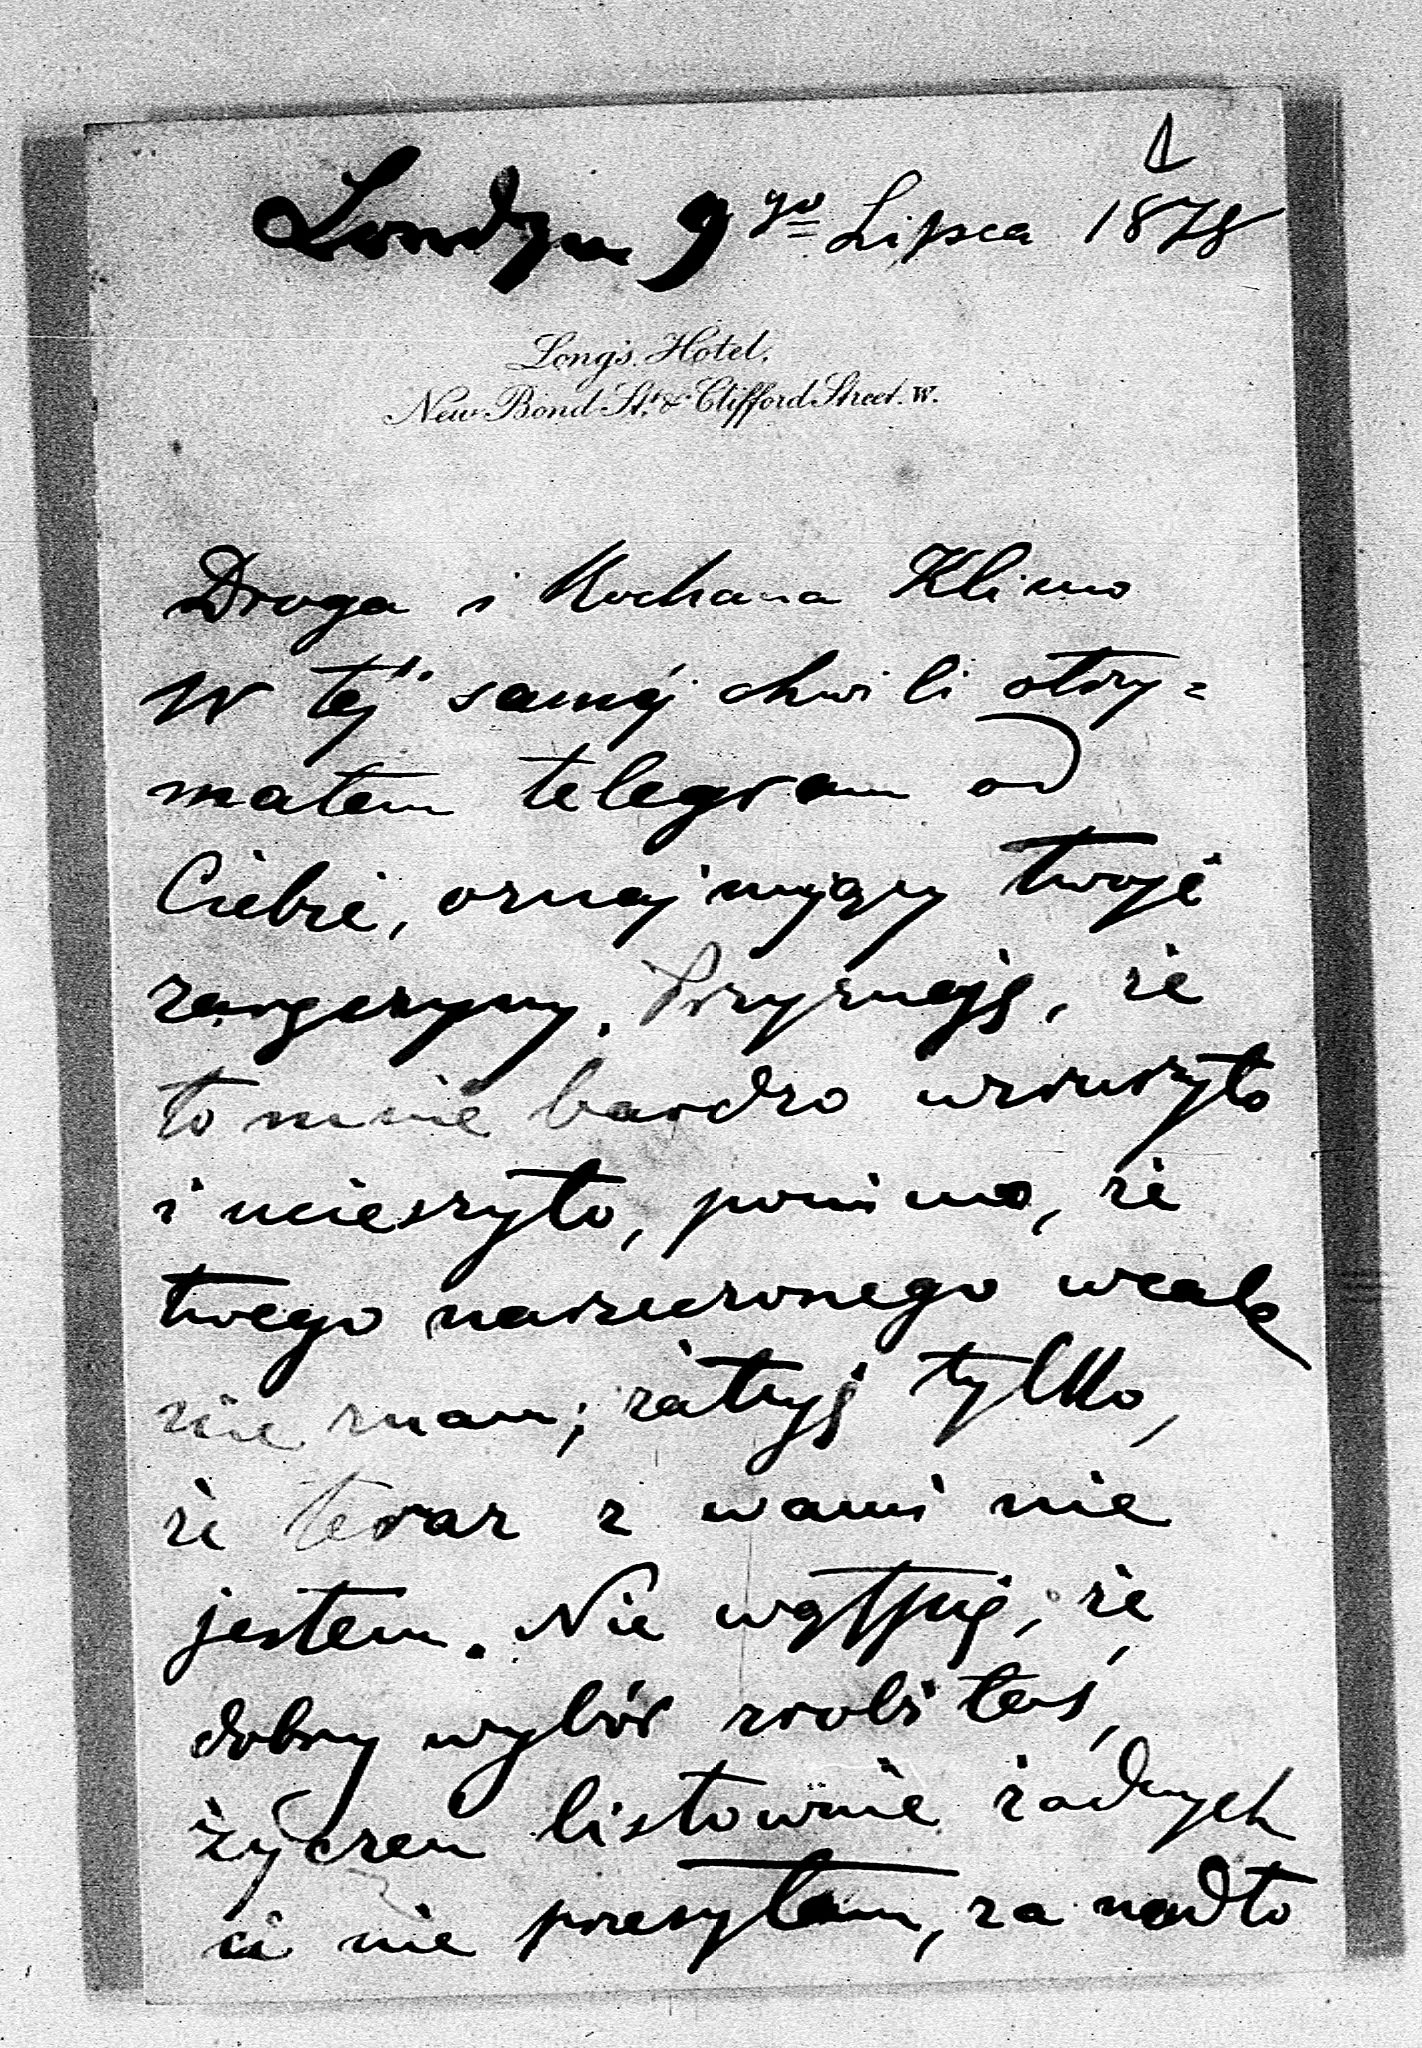 1
Londyn 9go Lipca 1878
Long's Hotel,
New Bond St. & Clifford Street. W.
Droga i Kochana Klimo
W téj saméj chwili otrzy=
małem telegram od
Ciebie, oznajmujący twoje
zaręczyny. Przyznaję, że
to mnie bardzo wzruszyło
i ucieszyło, pomimo, że
twego narzeczonego wcale
nie znam; żałuję tylko,
że teraz z wami nie
jestem. Nie wątpię, że
dobry wybór zrobiłaś,
życzeń listownie żadnych
ci nie przesyłam, za nadto